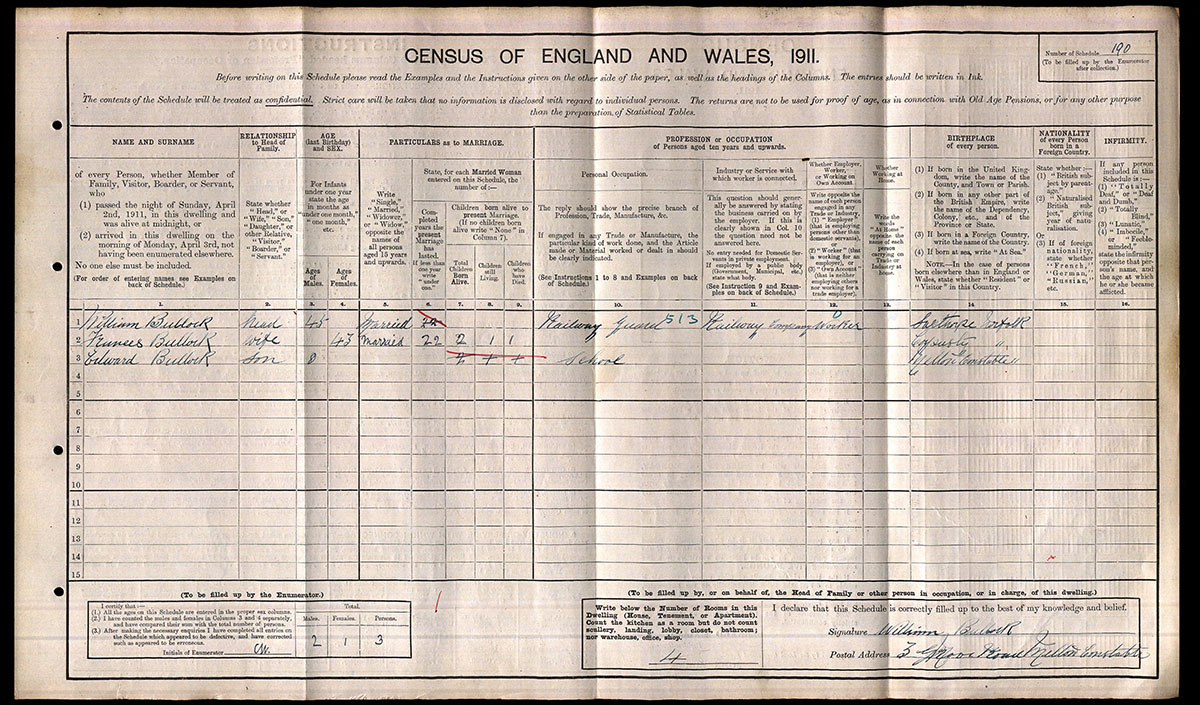 CENSUS OF ENGLAND AND WALES, 1911.
Number of Schedule 190
(To be filled up by the Enumerator after collection.)
Before writing on this Schedule please read the Examples and the Instructions given on the other side of the paper, as well as the headings of the Columns. The entries should be written in Ink.
The contents of the Schedule will be treated as confidential. Strict care will be taken that no information is disclosed with regard to individual persons. The returns are not to be used for proof of age, as in connection with Old Age Pensions, or for any other purpose
than the preparation of Statistical Tables.
NAME AND SURNAME
of every Person, whether Member of
Family, Visitor, Boarder, or Servant,
who
(1) passed the night of Sunday, April
2nd, 1911, in this dwelling and
was alive at midnight, or
(2) arrived in this dwelling on the
morning of Monday, April 3rd, not
having been enumerated elsewhere.
No one else must be included.
(For order of entering names see Examples on
back of Schedule.)
RELATIONSHIP
to Head of
Family.
State whether
"Head," or
"Wife," "Son,"
"Daughter," or
other Relative,
"Visitor,"
"Boarder," or
"Servant."
AGE
(last Birthday)
and SEX.
For Infants
under one year
state the age
in months as
"under one month,"
"one month,"
etc.
Ages
of
Males.
Ages
of
Females.
PARTICULARS as to MARRIAGE.
Write
"Single,"
"Married,"
"Widower,"
or "Widow,"
opposite the
names of
all persons
aged 15 years
and upwards.
State, for each Married Woman
entered on this Schedule, the
number of:—
Com-
pleted
years the
present
Marriage
has
lasted.
If less than
one year
write
"under
one."
Children born alive to
present Marriage.
(If no children born
alive write "None" in
Column 7).
Total
Children
Born
Alive.
Children
still
Living.
Children
who
have
Died.
PROFESSION or OCCUPATION
of Persons aged ten years and upwards.
Personal Occupation.
The reply should show the precise branch of
Profession, Trade, Manufacture, &c.
If engaged in any Trade or Manufacture, the
particular kind of work done, and the Article
made or Material worked or dealt in should
be clearly indicated.
(See Instructions 1 to 8 and Examples on back
of Schedule.)
Industry or Service with
which worker is connected.
This question should gener-
ally be answered by stating
the business carried on by
the employer. If this is
clearly shown in Col. 10
the question need not be
answered here.
No entry needed for Domestic Ser-
vants in private employment.
If employed by a public body
(Government, Municipal, etc.)
state what body.
(See Instruction 9 and Exam-
ples on back of Schedule.)
Whether Employer,
Worker,
or Working on
Own Account.
Write opposite the
name of each person
engaged in any
Trade or Industry,
(1) "Employer"
(that is employing
persons other than
domestic servants),
or
(2) "Worker" (that
is working for an
employer), or
(3) "Own Account"
(that is neither
employing others
nor working for a
trade employer).
Whether
Working at
Home.
Write the
words
"At Home"
opposite the
name of each
person
carrying on
Trade or
Industry at
Home.
BIRTHPLACE
of every person.
(1) If born in the United King-
dom, write the name of the
County, and Town or Parish.
(2) If born in any other part of
the British Empire, write
the name of the Dependency,
Colony, etc., and of the
Province or State.
(3) If born in a Foreign Country,
write the name of the Country.
(4) If born at sea, write "At Sea."
NOTE.—In the case of persons
born elsewhere than in England or
Wales, state whether "Resident" or
"Visitor" in this Country.
NATIONALITY
of every Person
born in a
Foreign Country.
State whether:—
(1) "British sub-
ject by parent-
age."
(2) "Naturalised
British sub-
ject," giving
year of natu-
ralisation.
Or
(3) If of foreign
nationality,
state whether
"French,"
"German,"
"Russian,"
etc.
INFIRMITY.
If any person
included in this
Schedule is:—
(1) "Totally
Deaf," or "Deaf
and Dumb,"
(2) "Totally
Blind,"
(3) "Lunatic,"
(4) "Imbecile,"
or "Feeble-
minded,"
state the infirmity
opposite that per-
son's name, and
the age at which
he or she became
afflicted.
1. 2. 3. 4. 5. 6. 7. 8. 9. 10. 11. 12. 13. 14. 15. 16.
1 William Bullock Head 45 Married 22 Railway Guard 513 Railway Company Worker Norfolk
2 Bullock Wife 43 Married 22 2 1 1 "
3 Edward Bullock Son 8 2 1 1 School Melton Constable "
4
5
6
7
8
9
10
11
12
13
14
15
(To be filled up by the Enumerator.)
I certify that:—
(1.) All the ages on this Schedule are entered in the proper sex columns.
(2.) I have counted the males and females in Columns 3 and 4 separately,
and have compared their sum with the total number of persons.
(3.) After making the necessary enquiries I have completed all entries on
the Schedule which appeared to be defective, and have corrected
such as appeared to be erroneous.
Initials of Enumerator
Total.
Males. Females. Persons.
2 1 3
(To be filled up by, or on behalf of, the Head of Family or other person in occupation, or in charge, of this dwelling.)
Write below the Number of Rooms in this
Dwelling (House, Tenement, or Apartment).
Count the kitchen as a room but do not count
scullery, landing, lobby, closet, bathroom;
nor warehouse, office, shop.
4
I declare that this Schedule is correctly filled up to the best of my knowledge and belief.
Signature William Bullock
Postal Address 3 Grove Road Melton Constable